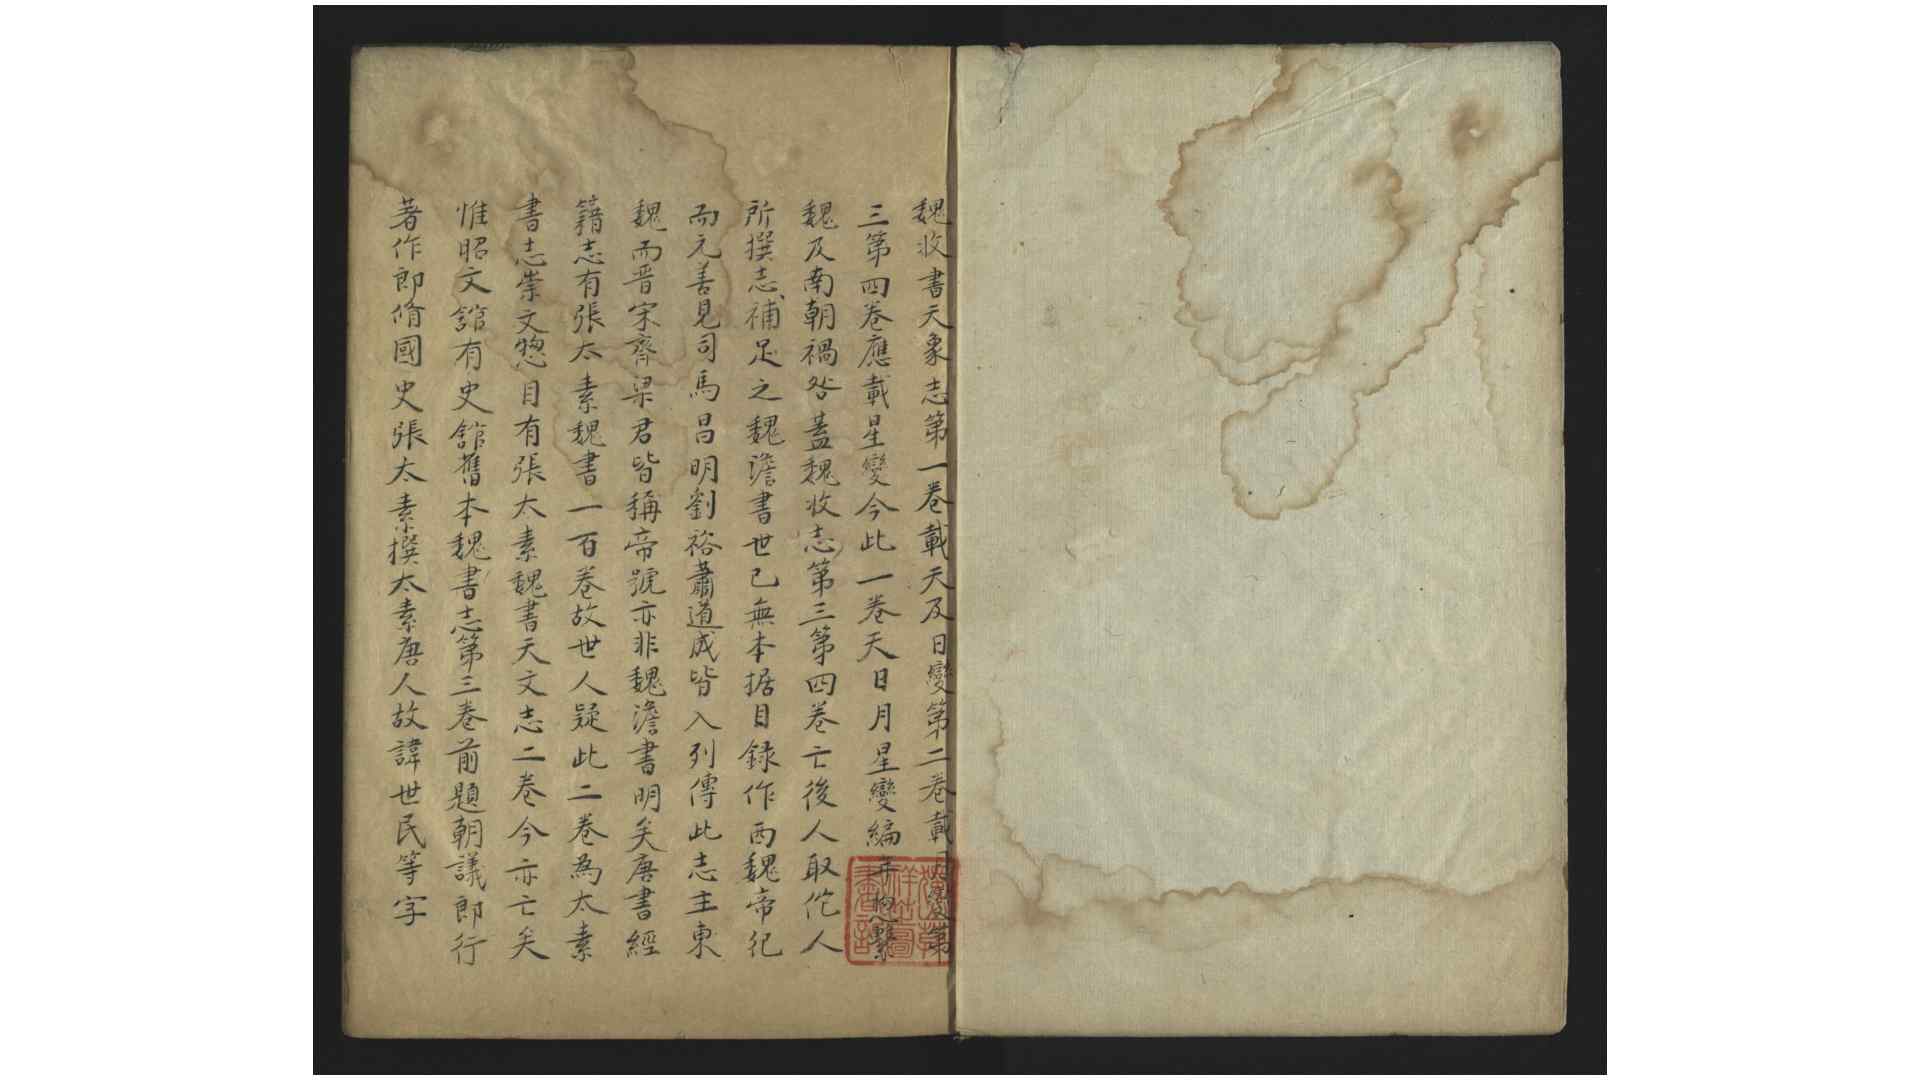 魏收書天象志第一卷載天及日變第二卷載月變第
三第四卷應載星變今此一卷天日月星變編年惣繫
魏及南朝禍咎蓋魏收志第三第四卷亡後人取佗人
所撰志補足之魏澹書世已無本据目録作西魏帝紀
而元善見司馬昌明劉裕蕭道成皆入列傳此志主東
魏而晋宋齊梁君皆稱帝號亦非魏澹書明矣唐書經
籍志有張太素魏書一百卷故世人疑此二卷為太素
書志崇文惣目有張太素魏書天文志二卷今亦亡矣
惟昭文館有史館舊本魏書志第三卷前題朝議郎行
著作郎脩國史張太素撰太素唐人故諱世民等字